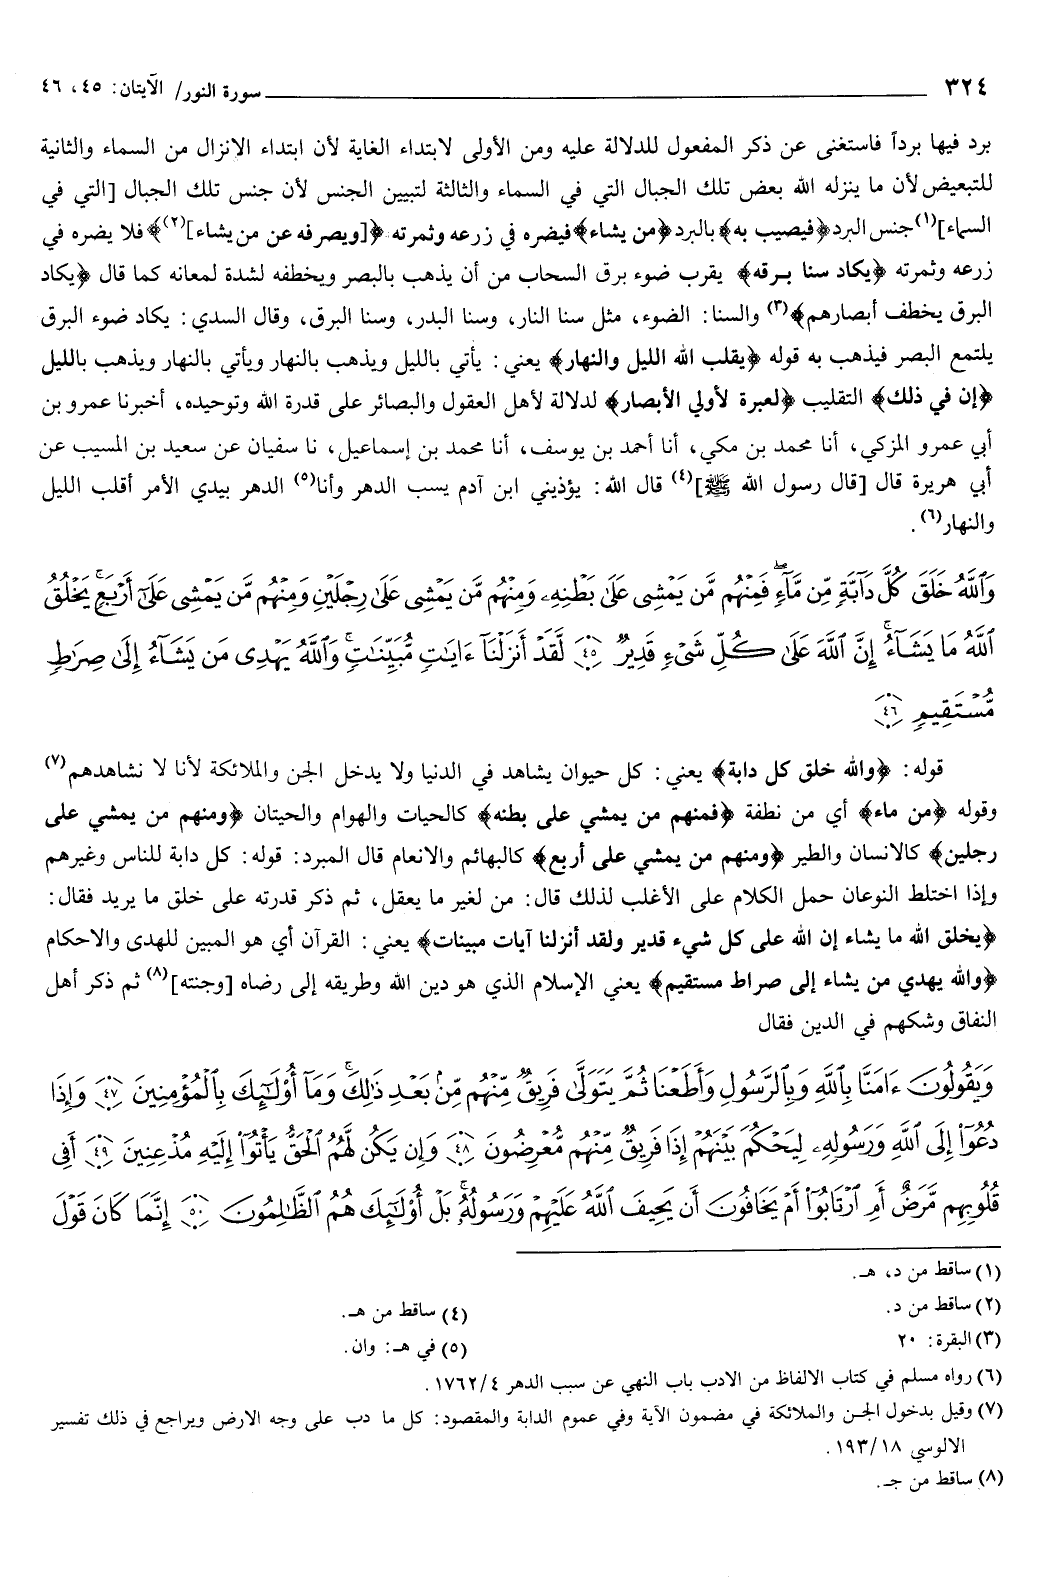 ٣٢٤ سورة النور/ الآيتان: ٤٥، ٤٦
برد فيها برداً فاستغنى عن ذكر المفعول للدلالة عليه ومن الأولى لابتداء الغاية لأن ابتداء الانزال من السماء والثانية
للتبعيض لأن ما ينزله الله بعض تلك الجبال التي في السماء والثالثة لتبيين الجنس لأن جنس تلك الجبال [التي في
السماء](١) جنس البرد ﴿فيصيب به﴾ بالبرد ﴿من يشاء﴾ فيضره في زرعه وثمرته ﴿[ويصرفه عن من يشاء](٢)﴾ فلا يضره في
زرعه وثمرته ﴿يكاد سنا برقه﴾ يقرب ضوء برق السحاب من أن يذهب بالبصر ويخطفه لشدة لمعانه كما قال ﴿يكاد
البرق يخطف أبصارهم﴾(٣) والسنا: الضوء، مثل سنا النار، وسنا البدر، وسنا البرق، وقال السدي: يكاد ضوء البرق
يلتمع البصر فيذهب به قوله ﴿يقلب الله الليل والنهار﴾ يعني: يأتي بالليل ويذهب بالنهار ويأتي بالنهار ويذهب بالليل
﴿إن في ذلك﴾ التقليب ﴿لعبرة لأولي الأبصار﴾ لدلالة لأهل العقول والبصائر على قدرة الله وتوحيده، أخبرنا عمرو بن
أبي عمرو المزكي، أنا محمد بن مكي، أنا أحمد بن يوسف، أنا محمد بن إسماعيل، نا سفيان عن سعيد بن المسيب عن
أبي هريرة قال [قال رسول الله ﷺ](٤) قال الله: يؤذيني ابن آدم يسب الدهر وأنا(٥) الدهر بيدي الأمر أقلب الليل
والنهار(٦).
وَٱللَّهُ خَلَقَ كُلَّ دَآبَّةٍ مِّن مَّآءٍ ۖ فَمِنْهُم مَّن يَمْشِى عَلَىٰ بَطْنِهِۦ وَمِنْهُم مَّن يَمْشِى عَلَىٰ رِجْلَيْنِ وَمِنْهُم مَّن يَمْشِى عَلَىٰٓ أَرْبَعٍ ۚ يَخْلُقُ
ٱللَّهُ مَا يَشَآءُ ۚ إِنَّ ٱللَّهَ عَلَىٰ كُلِّ شَىْءٍ قَدِيرٌ ﴿٤٥﴾ لَّقَدْ أَنزَلْنَآ ءَايَٰتٍ مُّبَيِّنَٰتٍ ۚ وَٱللَّهُ يَهْدِى مَن يَشَآءُ إِلَىٰ صِرَٰطٍ
مُّسْتَقِيمٍ ﴿٤٦﴾
قوله: ﴿والله خلق كل دابة﴾ يعني: كل حيوان يشاهد في الدنيا ولا يدخل الجن والملائكة لأنا لا نشاهدهم(٧)
وقوله ﴿من ماء﴾ أي من نطفة ﴿فمنهم من يمشي على بطنه﴾ كالحيات والهوام والحيتان ﴿ومنهم من يمشي على
رجلين﴾ كالانسان والطير ﴿ومنهم من يمشي على أربع﴾ كالبهائم والانعام قال المبرد: قوله: كل دابة للناس وغيرهم
وإذا اختلط النوعان حمل الكلام على الأغلب لذلك قال: من لغير ما يعقل، ثم ذكر قدرته على خلق ما يريد فقال:
﴿يخلق الله ما يشاء إن الله على كل شيء قدير ولقد أنزلنا آيات مبينات﴾ يعني: القرآن أي هو المبين للهدى والاحكام
﴿والله يهدي من يشاء إلى صراط مستقيم﴾ يعني الإسلام الذي هو دين الله وطريقه إلى رضاه [وجنته](٨) ثم ذكر أهل
النفاق وشكهم في الدين فقال
وَيَقُولُونَ ءَامَنَّا بِٱللَّهِ وَبِٱلرَّسُولِ وَأَطَعْنَا ثُمَّ يَتَوَلَّىٰ فَرِيقٌ مِّنْهُم مِّنۢ بَعْدِ ذَٰلِكَ ۚ وَمَآ أُو۟لَٰٓئِكَ بِٱلْمُؤْمِنِينَ ﴿٤٧﴾ وَإِذَا
دُعُوٓا۟ إِلَى ٱللَّهِ وَرَسُولِهِۦ لِيَحْكُمَ بَيْنَهُمْ إِذَا فَرِيقٌ مِّنْهُم مُّعْرِضُونَ ﴿٤٨﴾ وَإِن يَكُن لَّهُمُ ٱلْحَقُّ يَأْتُوٓا۟ إِلَيْهِ مُذْعِنِينَ ﴿٤٩﴾ أَفِى
قُلُوبِهِم مَّرَضٌ أَمِ ٱرْتَابُوٓا۟ أَمْ يَخَافُونَ أَن يَحِيفَ ٱللَّهُ عَلَيْهِمْ وَرَسُولُهُۥ ۚ بَلْ أُو۟لَٰٓئِكَ هُمُ ٱلظَّٰلِمُونَ ﴿٥٠﴾ إِنَّمَا كَانَ قَوْلَ
(١) ساقط من د، هـ.
(٢) ساقط من د. (٤) ساقط من هـ.
(٣) البقرة: ٢٠ (٥) في هـ: وان.
(٦) رواه مسلم في كتاب الالفاظ من الادب باب النهي عن سبب الدهر ١٧٦٢/٤.
(٧) وقيل بدخول الجن والملائكة في مضمون الآية وفي عموم الدابة والمقصود: كل ما دب على وجه الارض ويراجع في ذلك تفسير
الالوسي ١٩٣/١٨.
(٨) ساقط من جـ.